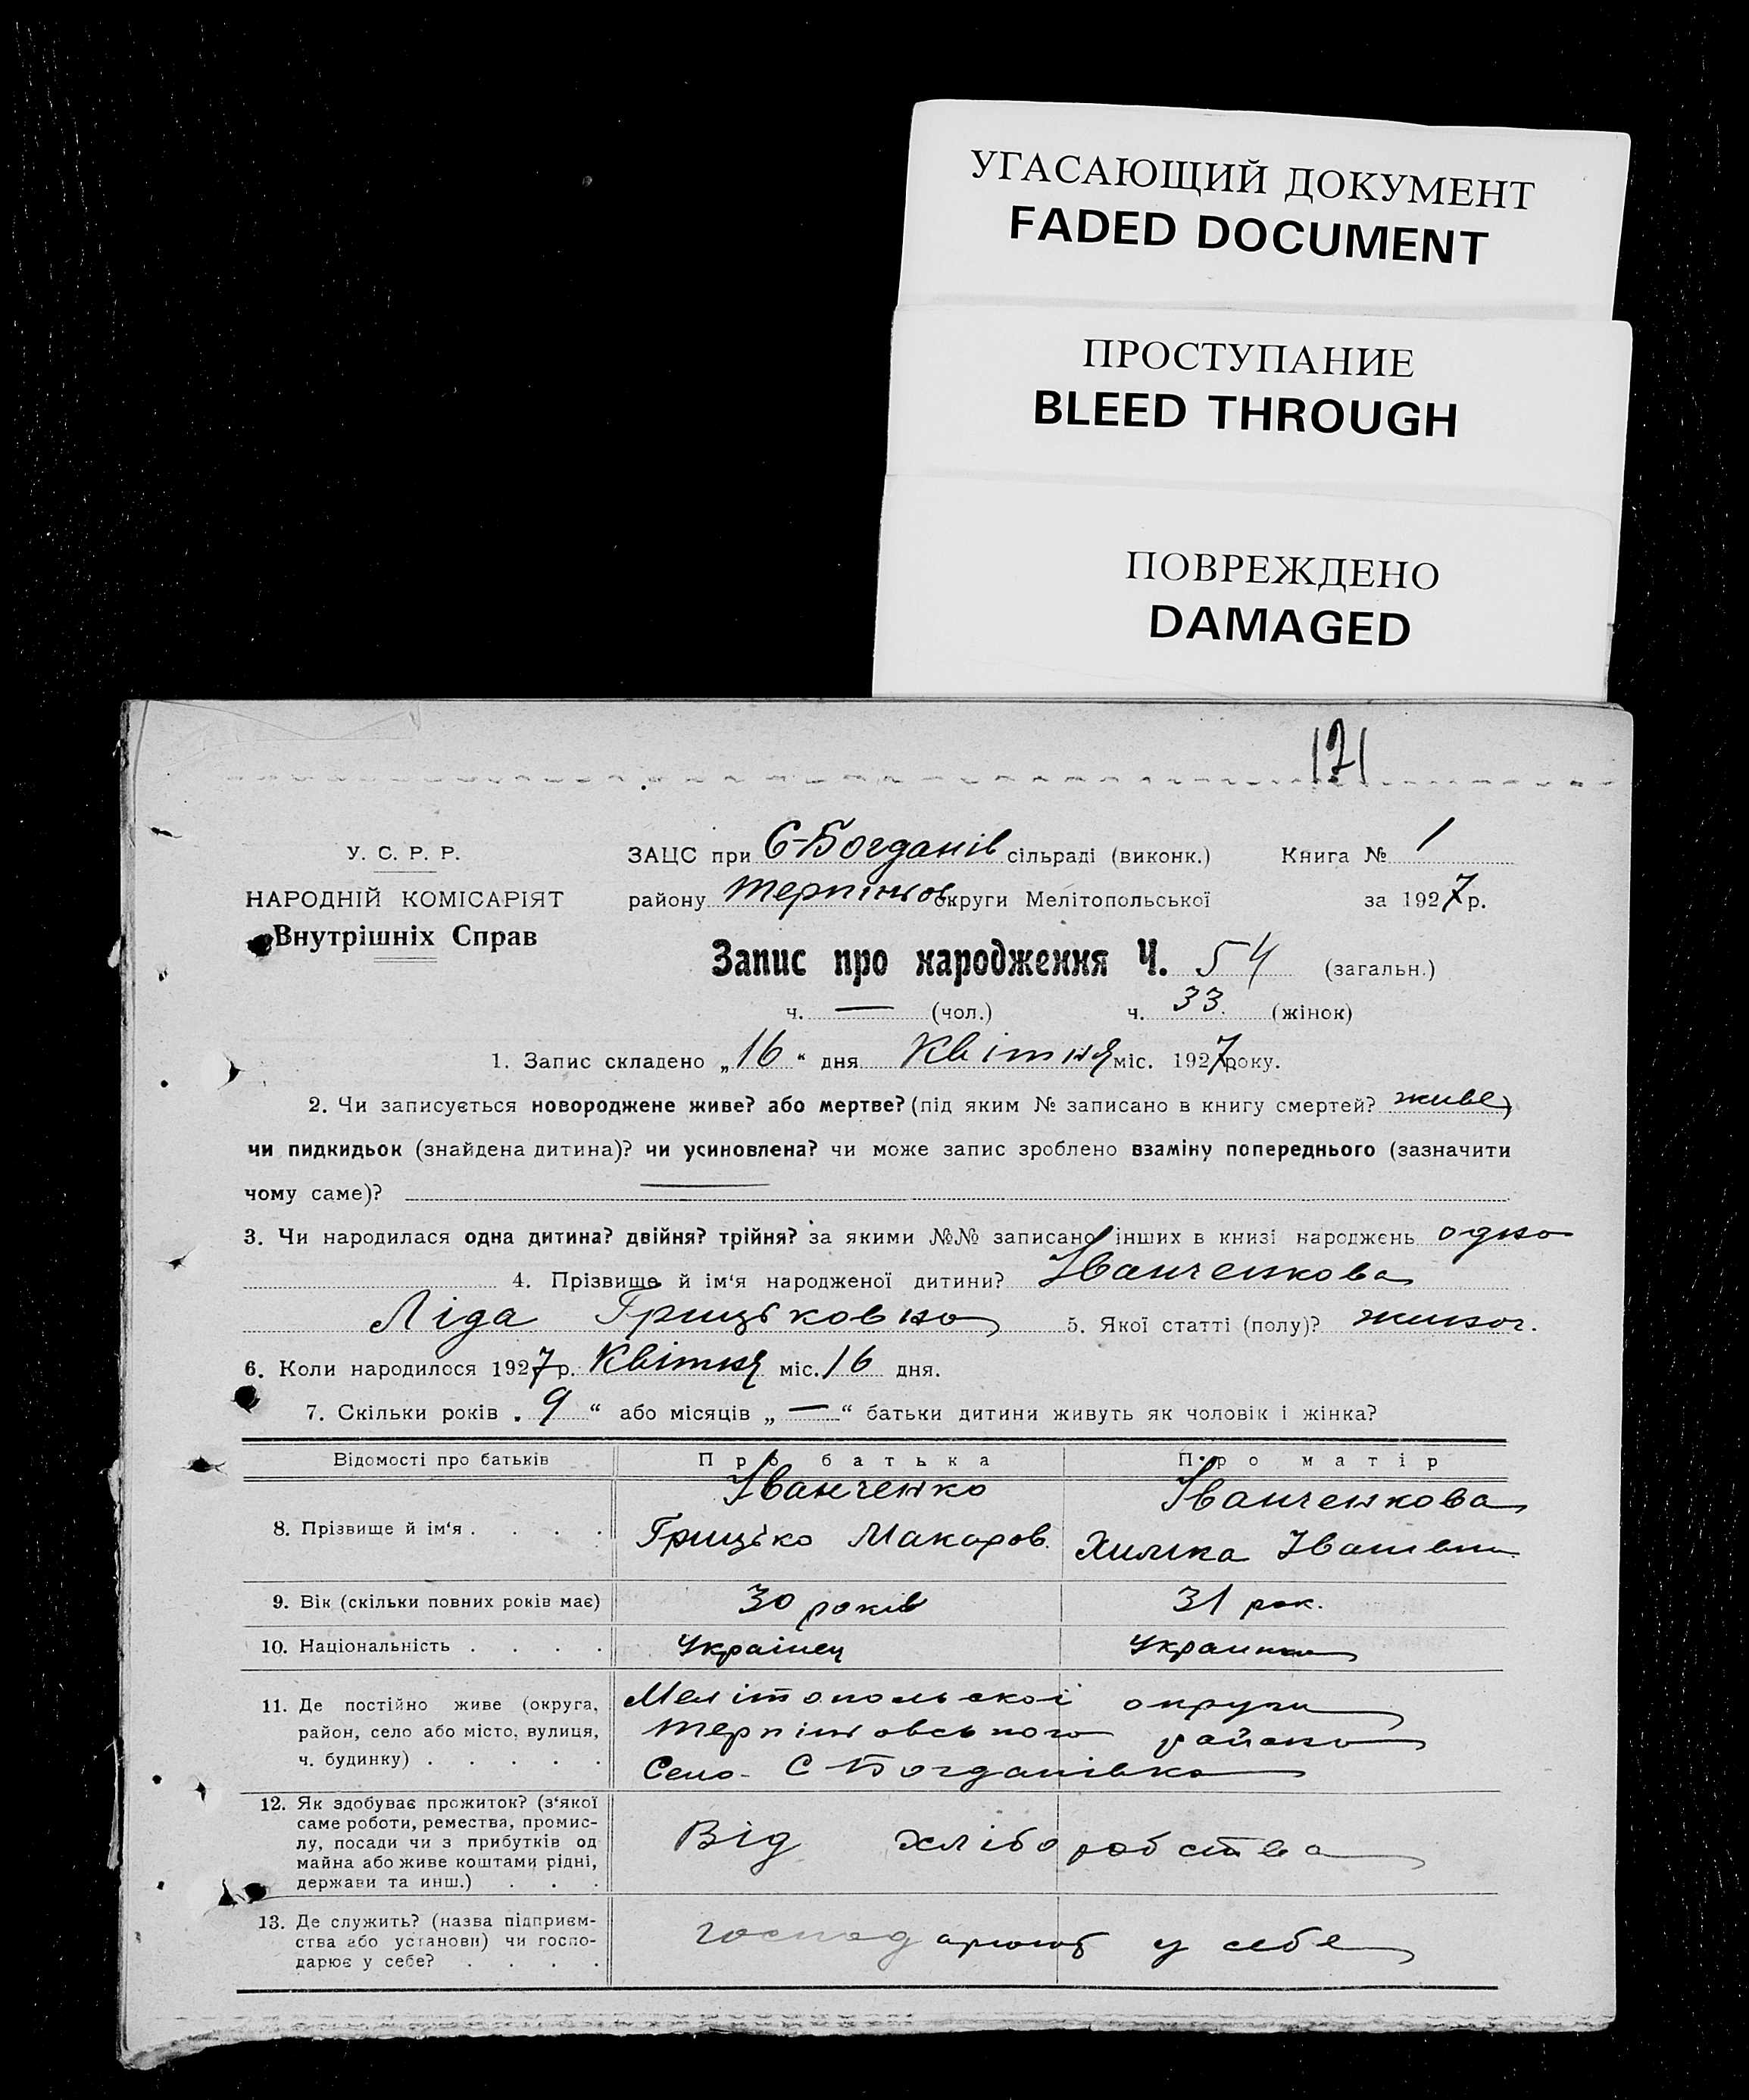 УГАСАЮЩИЙ ДОКУМЕНТ
FADED DOCUMENT
ПРОСТУПАНИЕ
BLEED THROUGH
ПОВРЕЖДЕНО
DAMAGED
171
У. С. Р. Р.
НАРОДНІЙ КОМІСАРІЯТ
Внутрішніх Справ
ЗАЦС при С-Богданів сільраді (виконк.) Книга № 1
району Терпіньов округи Мелітопольської за 1927 р.
Запис про народження Ч. 54 (загальн.)
ч. — (чол.) ч. 33. (жінок)
1. Запис складено „16“ дня Квітня міс. 1927 року.
2. Чи записується новороджене живе? або мертве? (під яким № записано в книгу смертей? живе)
чи пидкидьок (знайдена дитина)? чи усиновлена? чи може запис зроблено взаміну попереднього (зазначити
чому саме)? —
3. Чи народилася одна дитина? двійня? трійня? за якими №№ записано інших в книзі народжень одно
4. Прізвище й ім'я народженої дитини? Іванченкова
Ліда Грицьковна 5. Якої статті (полу)? жиноч.
6. Коли народилося 1927 р. Квітня міс. 16 дня.
7. Скільки років „9“ або місяців „—“ батьки дитини живуть як чоловік і жінка?
Відомості про батьків Про батька Про матір
8. Прізвище й ім'я . . . . Іванченко Іванченкова
Грицько Макаров. Химка Іванівн.
9. Вік (скільки повних років має) 30 років 31 рок.
10. Національність . . . . Українец Украинка
11. Де постійно живе (округа, район, село або місто, вулиця, ч. будинку) . . . . .
Мелітопольскої округи
Терпіньовського району
Село- С Богданівка
12. Як здобуває прожиток? (з'якої саме роботи, ремества, промислу, посади чи з прибутків од майна або живе коштами рідні, держави та инш.) . . .
Від хліборобства
13. Де служить? (назва підприємства або установи) чи господарює у себе? . . . .
господарюют у себе